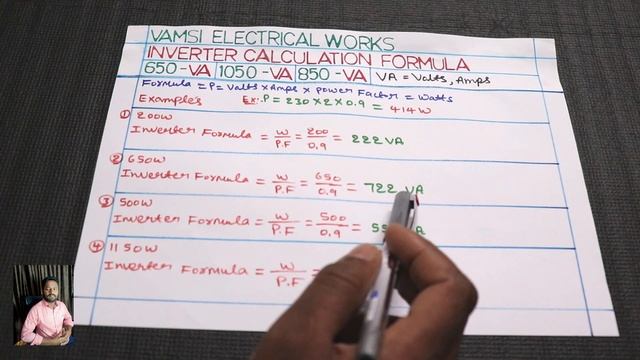 VAMSI ELECTRICAL WORKS
INVERTER CALCULATION FORMULA
650-VA 1050-VA 850-VA VA = Volts, Amps
Formula = P = Volts x Amps x Power Factor = Watts
Examples Ex:- P = 230 x 2 x 0.9 = 414 W
① 200W
Inverter Formula = W/P.F = 200/0.9 = 222 VA
② 650W
Inverter Formula = W/P.F = 650/0.9 = 722 VA
③ 500W
Inverter Formula = W/P.F = 500/0.9 =
④ 1150W
Inverter Formula = W/P.F =